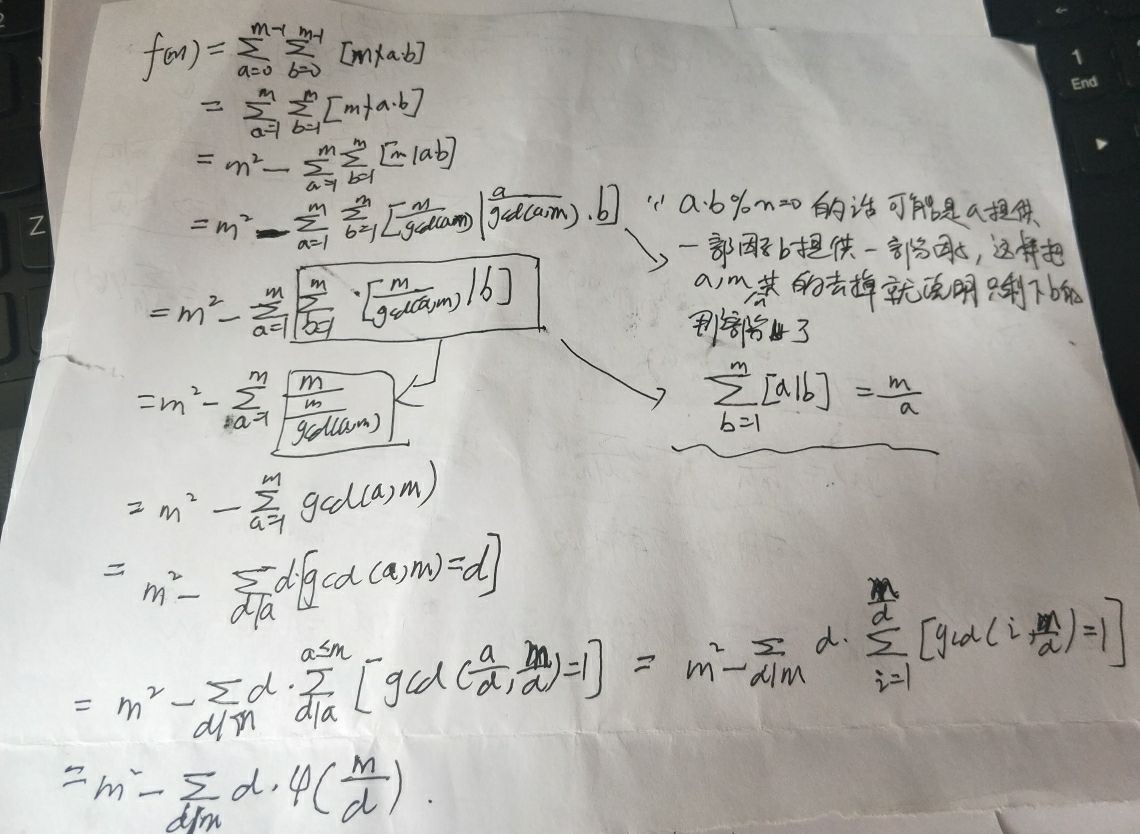 f(m) = \sum_{a=0}^{m-1} \sum_{b=0}^{m-1} [m∤a·b]
= \sum_{a=1}^{m} \sum_{b=1}^{m} [m∤a·b]
= m² - \sum_{a=1}^{m} \sum_{b=1}^{m} [m|ab]
= m² - \sum_{a=1}^{m} \sum_{b=1}^{m} [\frac{m}{gcd(a,m)} | \frac{a}{gcd(a,m)} · b]
∵ a·b%m=0 的话 可能是a提供
一部因子b提供一部分因子, 这样把
a,m 共的去掉就说明只剩下b的
那部分了
= m² - \sum_{a=1}^{m} \sum_{b=1}^{m} · [\frac{m}{gcd(a,m)} | b]
\sum_{b=1}^{m} [a|b] = \frac{m}{a}
= m² - \sum_{a=1}^{m} \frac{m}{\frac{m}{gcd(a,m)}}
= m² - \sum_{a=1}^{m} gcd(a,m)
= m² - \sum_{d|a} d·[gcd(a,m)=d]
= m² - \sum_{d|m} d · \sum_{d|a}^{a≤m} [gcd(\frac{a}{d}, \frac{m}{d})=1] = m² - \sum_{d|m} d · \sum_{i=1}^{\frac{m}{d}} [gcd(i, \frac{m}{d})=1]
= m² - \sum_{d|m} d · φ(\frac{m}{d}).
1
End
Z